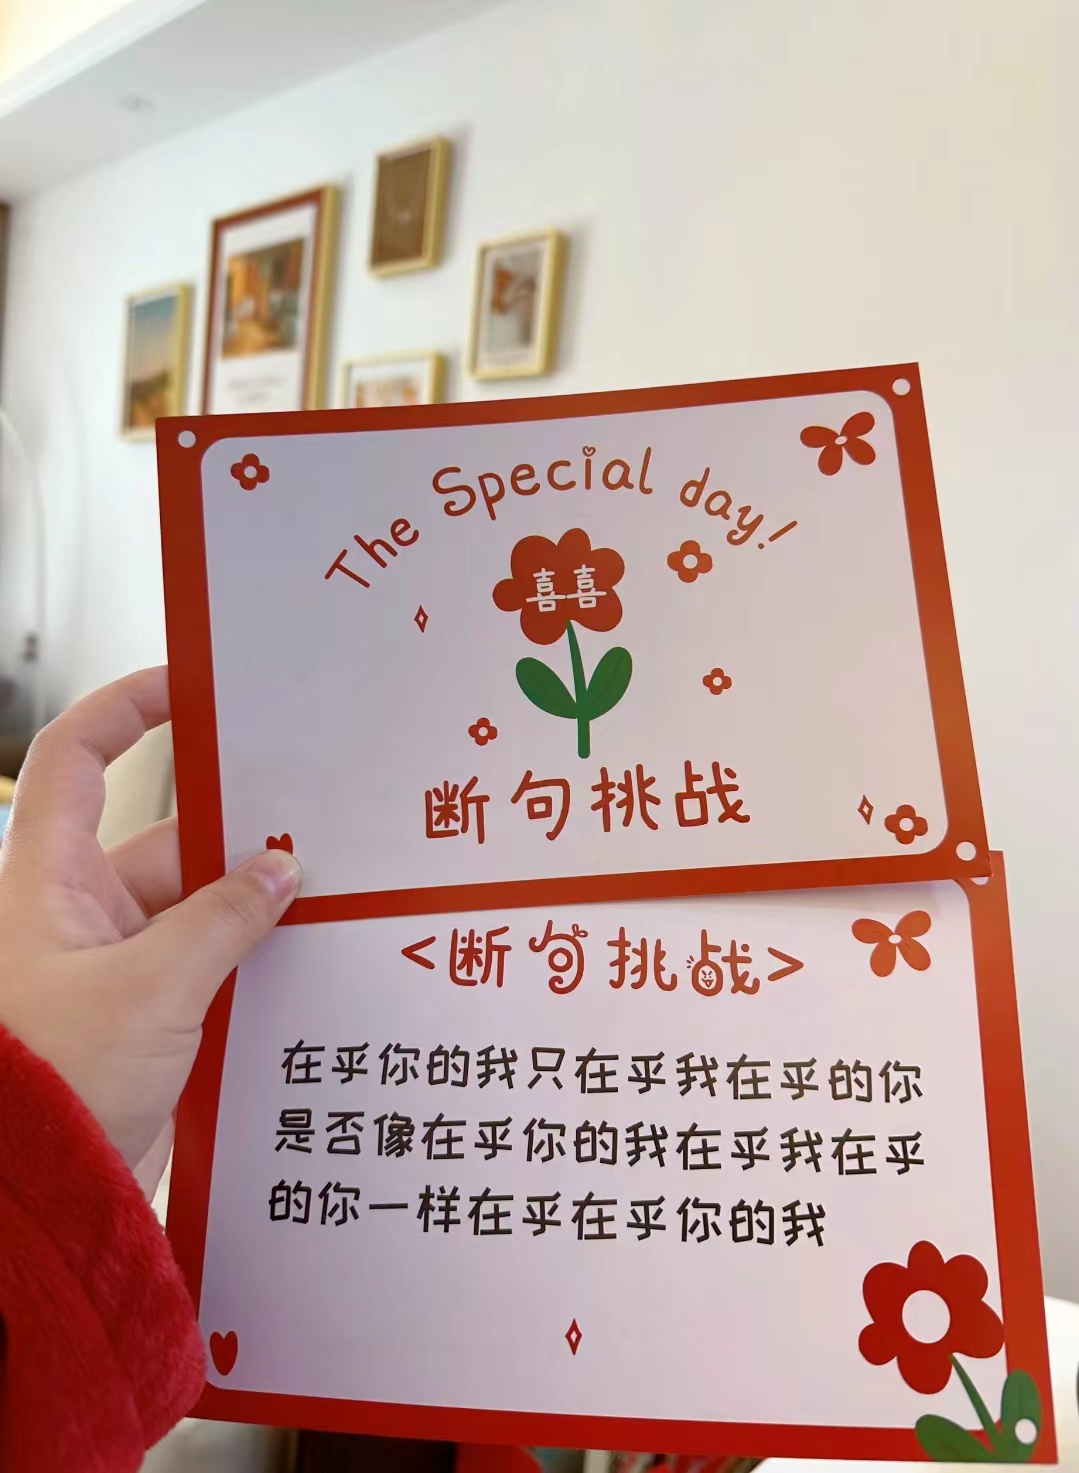 The Special day!
囍
断句挑战
<断句挑战>
在乎你的我只在乎我在乎的你
是否像在乎你的我在乎我在乎
的你一样在乎在乎你的我